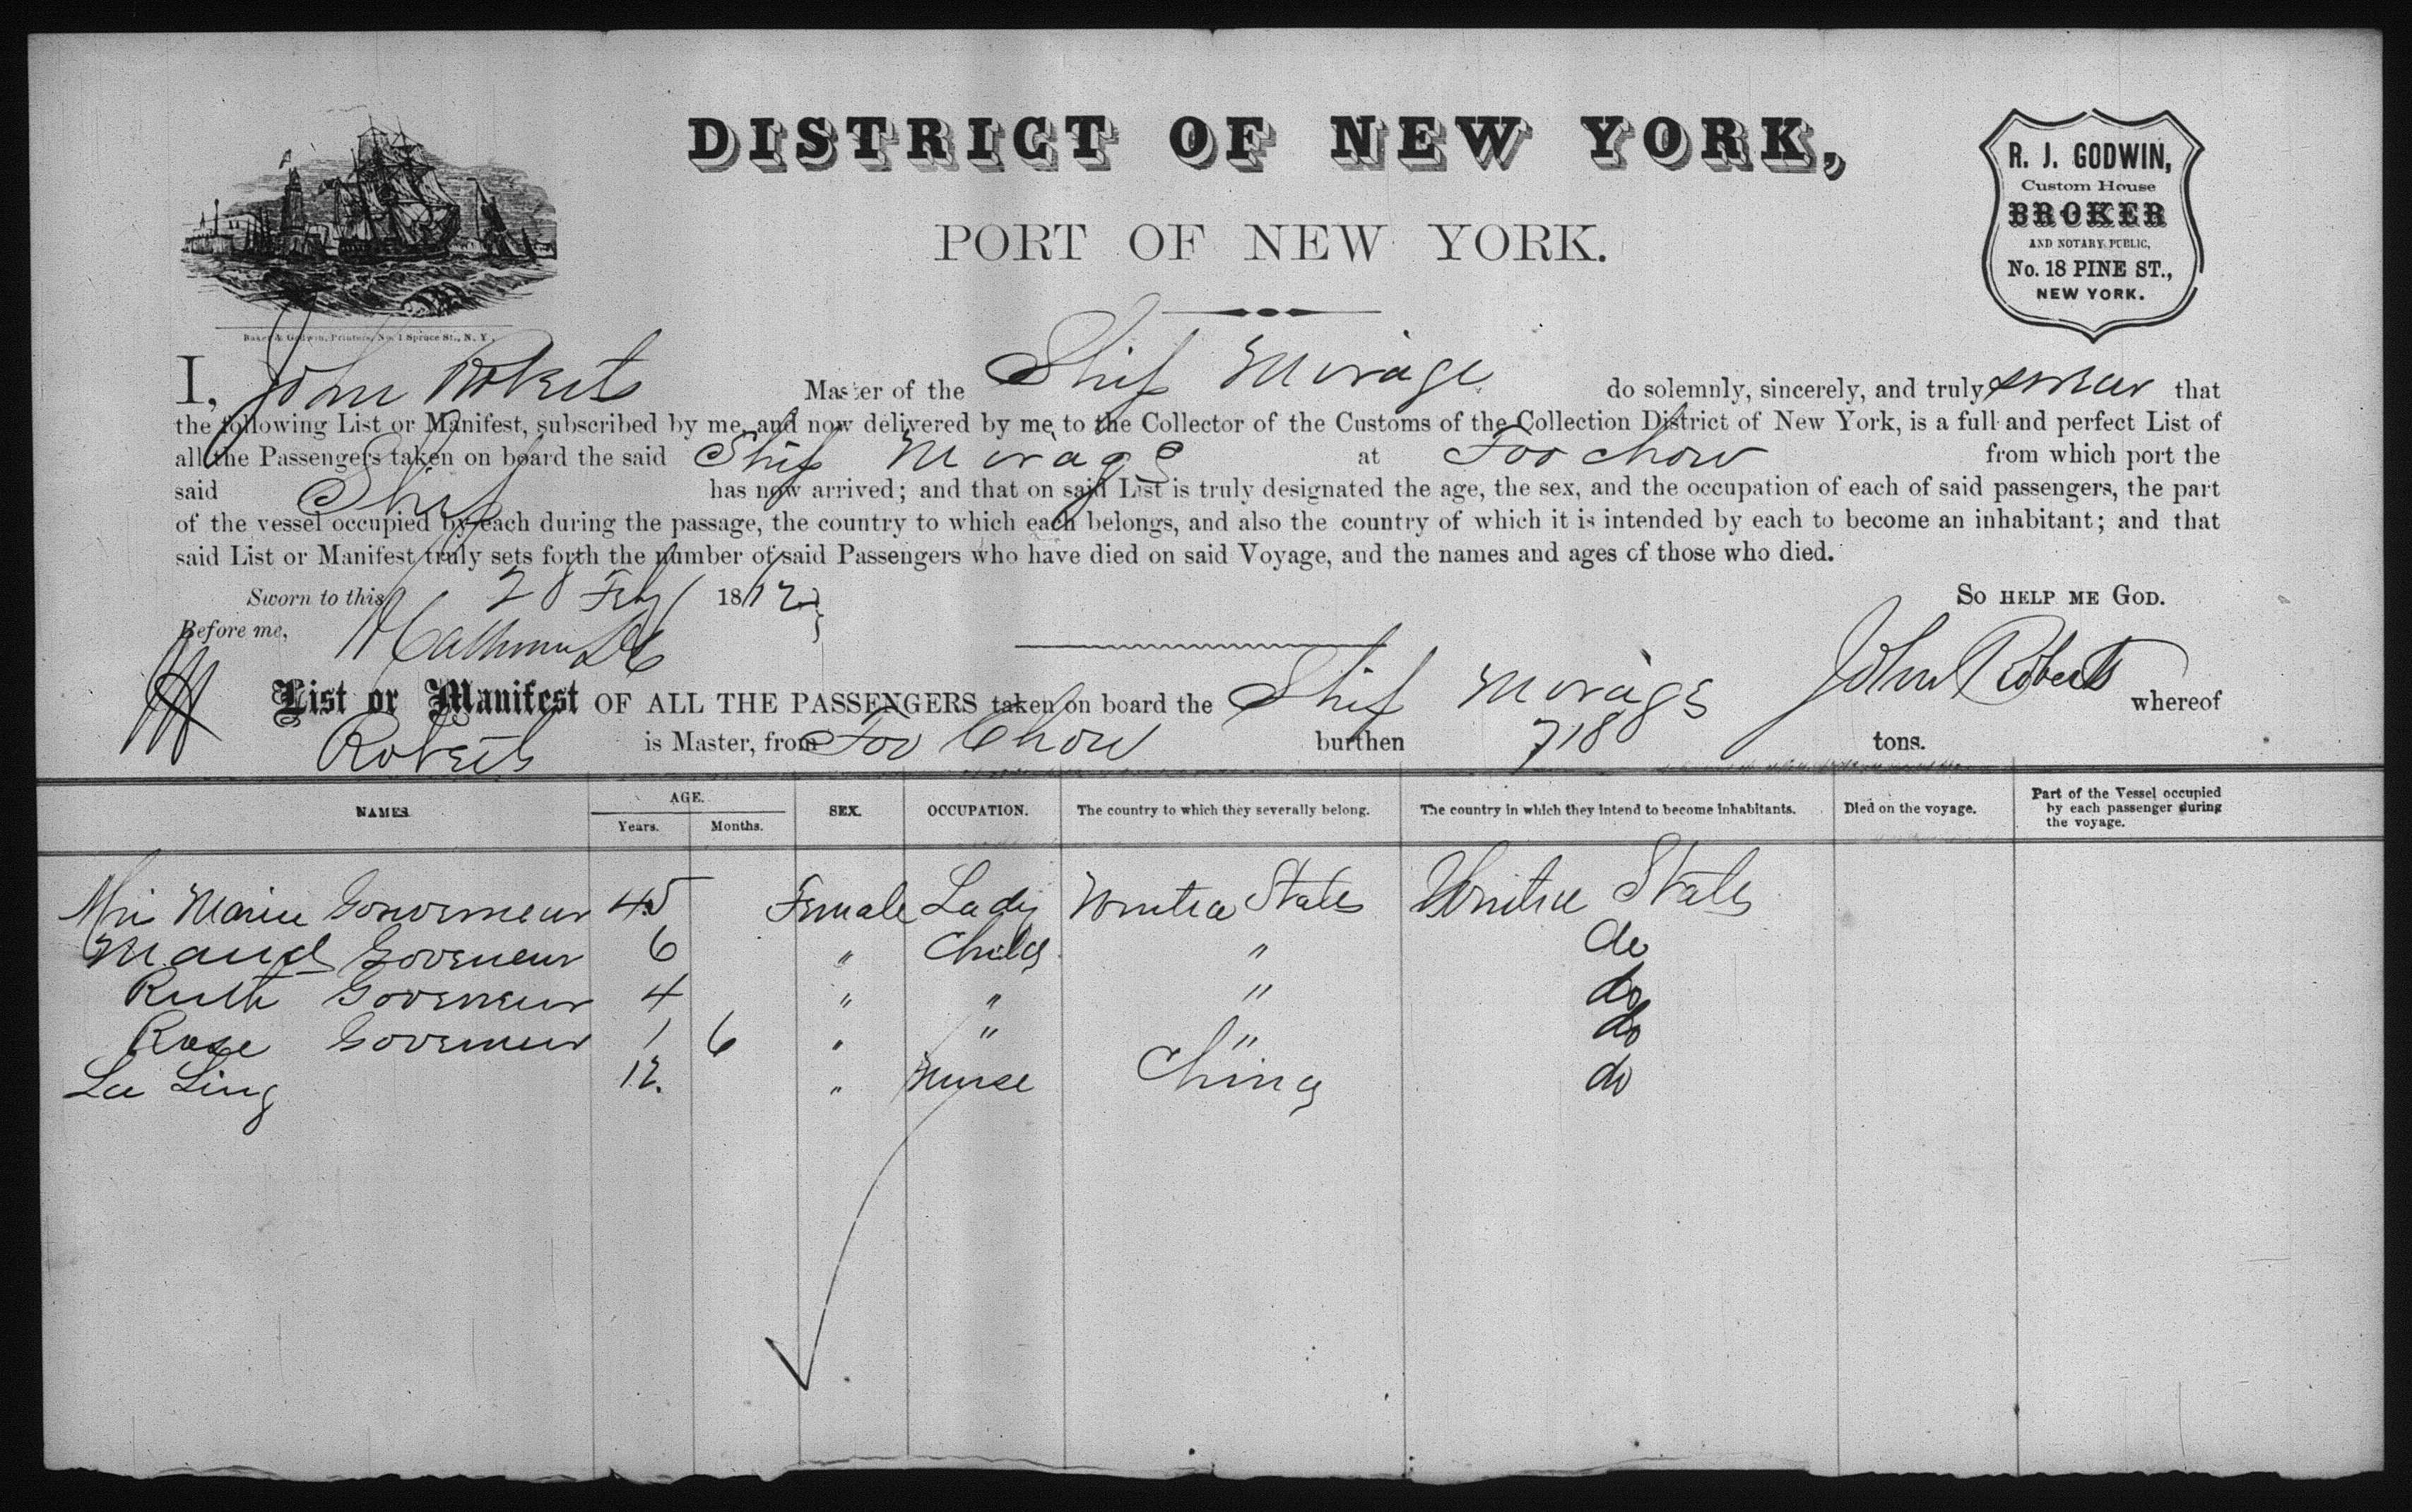 DISTRICT OF NEW YORK,
PORT OF NEW YORK.
R. J. GODWIN,
Custom House
BROKER
AND NOTARY PUBLIC,
No. 18 PINE ST.,
NEW YORK.
Baker & Godwin, Printers, No. 1 Spruce St., N. Y.
I, John Roberts Master of the Ship Mirage do solemnly, sincerely, and truly swear that
the following List or Manifest, subscribed by me, and now delivered by me to the Collector of the Customs of the Collection District of New York, is a full and perfect List of
all the Passengers taken on board the said Ship Mirage at Foo Chow from which port the
said Ship has now arrived; and that on said List is truly designated the age, the sex, and the occupation of each of said passengers, the part
of the vessel occupied by each during the passage, the country to which each belongs, and also the country of which it is intended by each to become an inhabitant; and that
said List or Manifest truly sets forth the number of said Passengers who have died on said Voyage, and the names and ages of those who died.
Sworn to this 28 Feby 1872 So HELP ME GOD.
Before me,
John Roberts
List or Manifest OF ALL THE PASSENGERS taken on board the Ship Mirage whereof
Roberts is Master, from Foo Chow burthen 718 tons.
NAMES AGE. Years. Months. SEX. OCCUPATION. The country to which they severally belong. The country in which they intend to become inhabitants. Died on the voyage. Part of the Vessel occupied by each passenger during the voyage.
Mrs Marie Gouverneur 45 Female Lady United States United States
Maud Goveneur 6 " Child " do
Ruth Governeur 4 " " " do
Rose Governeur 1 6 " " " do
Lee Ling 12. " Nurse China do